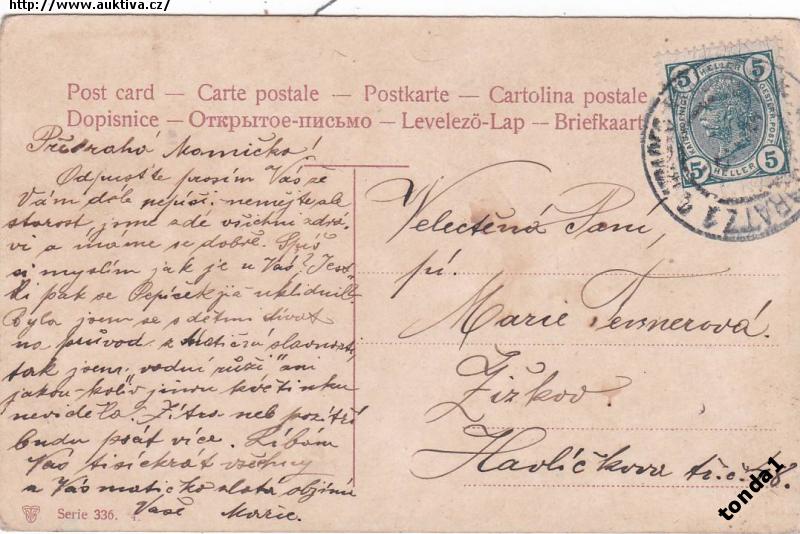 http://www.auktiva.cz/
Post card — Carte postale — Postkarte — Cartolina postale
Dopisnice — Открытое-письмо — Levelezö-Lap — Briefkaart
5 HELLER 5
5 HELLER 5
Předrahá Mamičko!
Odpusťte prosím Vás že
Vám déle nepíši. nemějte ale
starost jsme zde všichni zdrá-
vi a máme se dobře. Spíš
si myslím jak je u Vás? Jest-
li pak se Pepíček již uklidnil.
Byla jsem se s dětmi dívat
na průvod z slavnosti,
tak jsem vodní růži ani
jakou-koliv jinou květinku
neviděla. Zítra neb pozítří
budu psát více. Líbám
Vás tisíckrát všechny
a Vás matičko zlatá objímá
Vaše Marie.
Velectěná Paní,
pí.
Marie Tesnerová.
Žižkov.
Havlíčkova tř. č.
Serie 336. 4.
tonda1